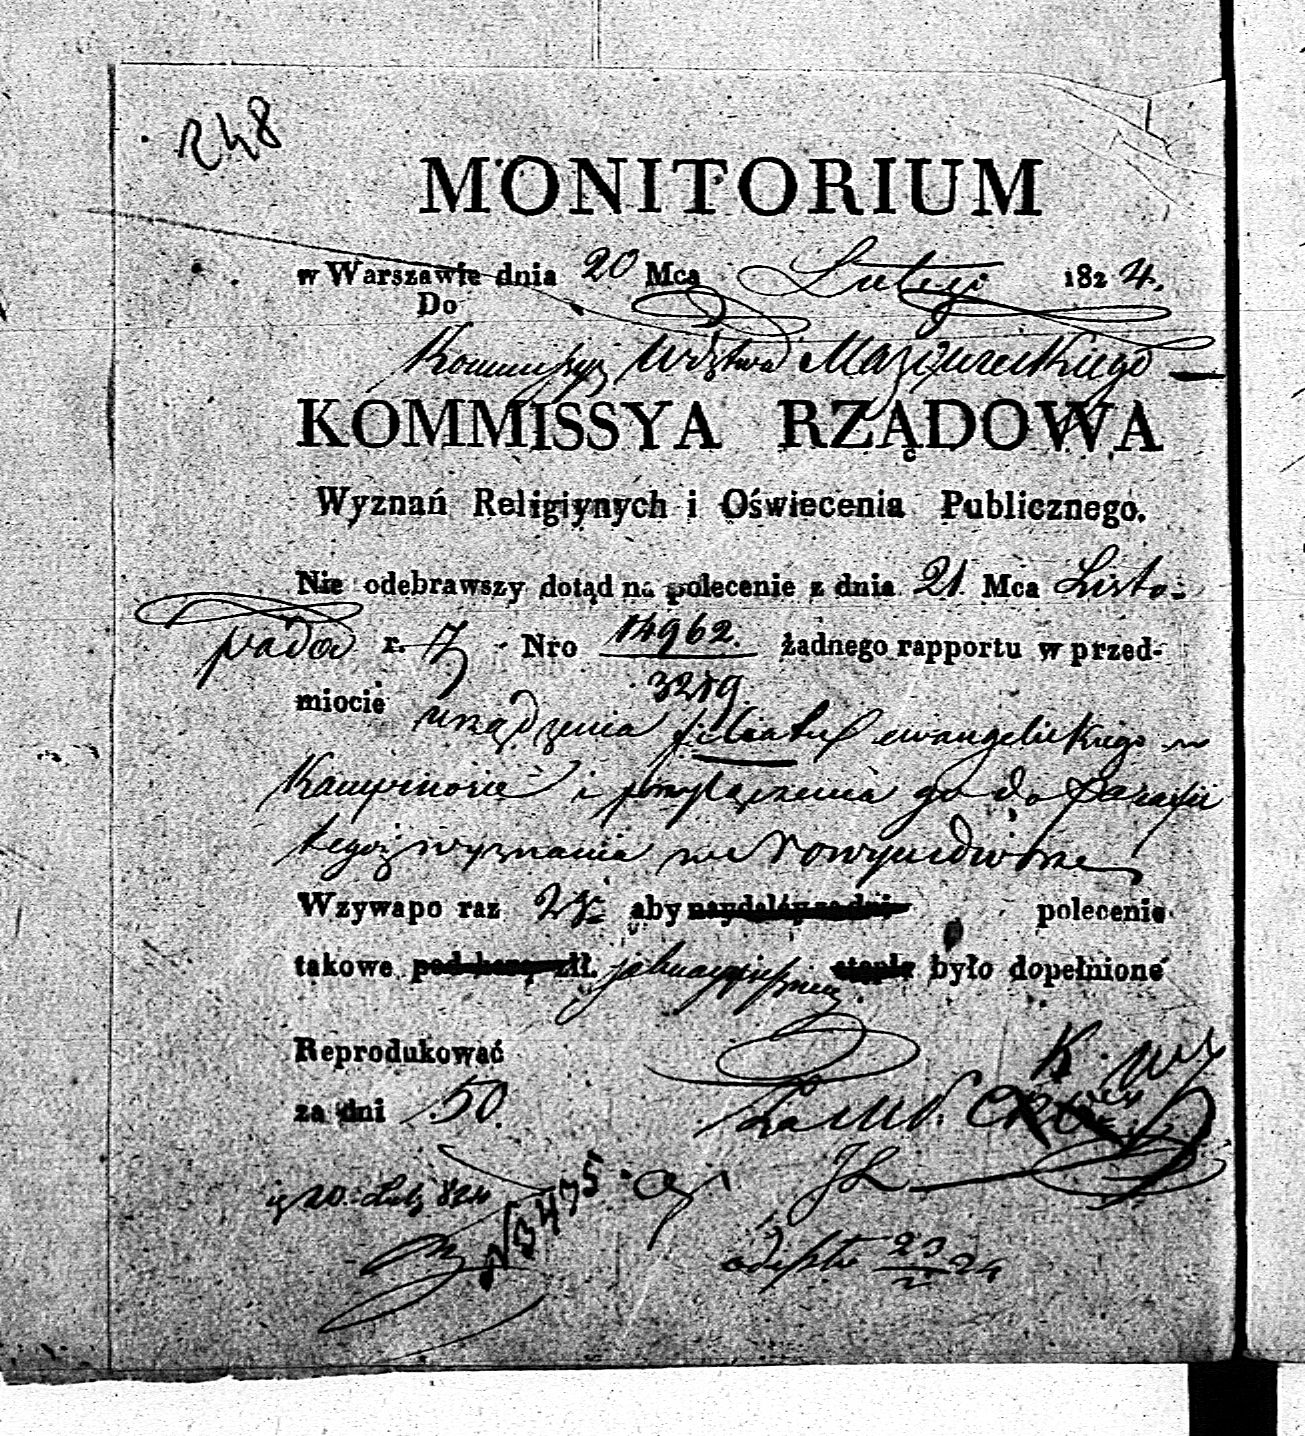 248
MONITORIUM
w Warszawie dnia 20 Mca Lutego 1824.
Do
Kommissyi Wdztwa Mazowieckiego
KOMMISSYA RZĄDOWA
Wyznań Religiynych i Oświecenia Publicznego.
Nie odebrawszy dotąd na polecenie z dnia 21 Mca Listo-
pada r. Nro 14962. żadnego rapportu w przed-
3219
miocie urządzenia filiału ewangelickiego w
Kampinosie i przyłączenia go do Parafii
tegoż wyznania w
Wzywa po raz 2gi aby polecenie
takowe było dopełnione
Reprodukować
za dni 50.
20. 824
N 3475
23
24